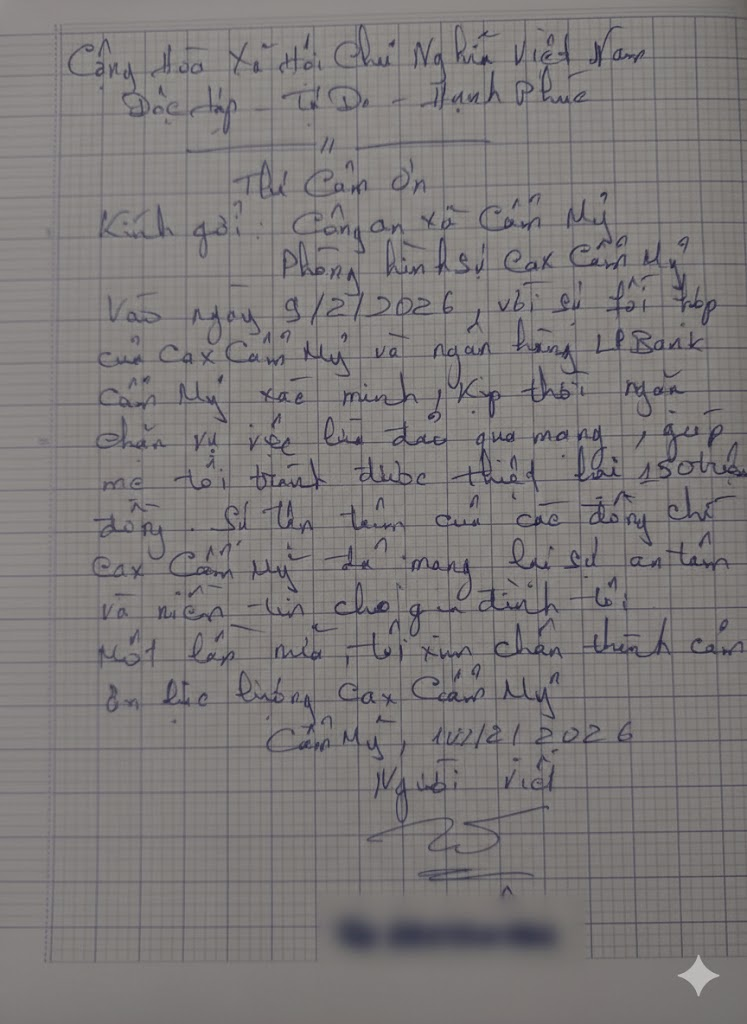 Cộng Hòa Xã Hội Chủ Nghĩa Việt Nam
Độc lập - Tự Do - Hạnh Phúc
//
Thư Cảm Ơn
Kính gởi: Công an xã Cẩm Mỹ
Phòng hình sự Cax Cẩm Mỹ
Vào ngày 9/2/2026, với sự phối hợp
của Cax Cẩm Mỹ và ngân hàng LPBank
Cẩm Mỹ xác minh, kịp thời ngăn
chặn vụ việc lừa đảo qua mạng, giúp
mẹ tôi tránh được thiệt hại 150 triệu
đồng. Sự tận tâm của các đồng chí
Cax Cẩm Mỹ đã mang lại sự an tâm
và niềm tin cho gia đình tôi
Một lần nữa, tôi xin chân thành cảm
ơn lực lượng Cax Cẩm Mỹ
Cẩm Mỹ, /2/2026
Người viết